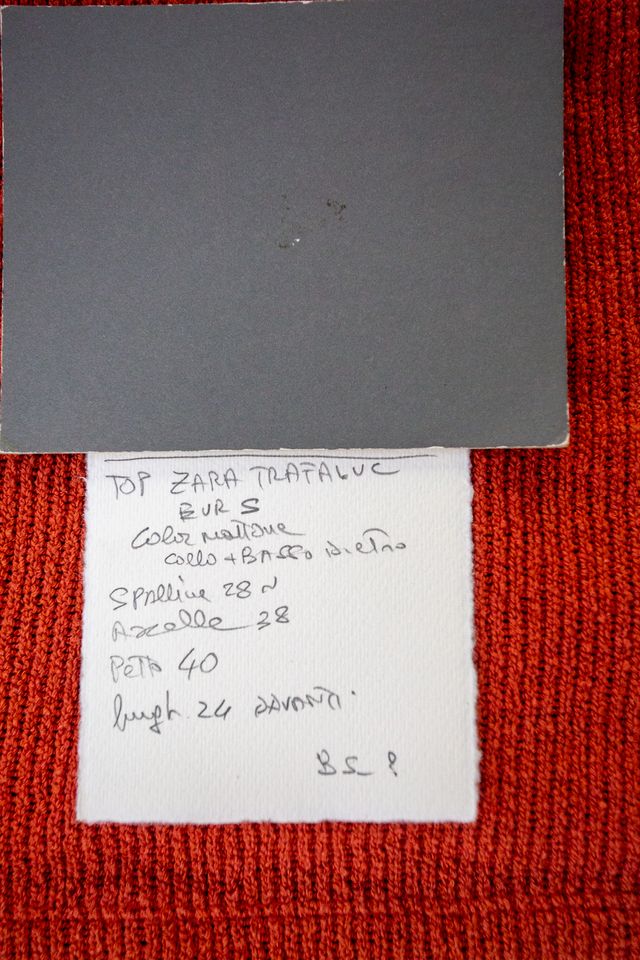 TOP ZARA TRAFALUC
EUR S
Color mattone
collo + BASSO dietro
SPalline 28 ~
Ascelle 38
Petto 40
lungh. 24 DAVANTI.